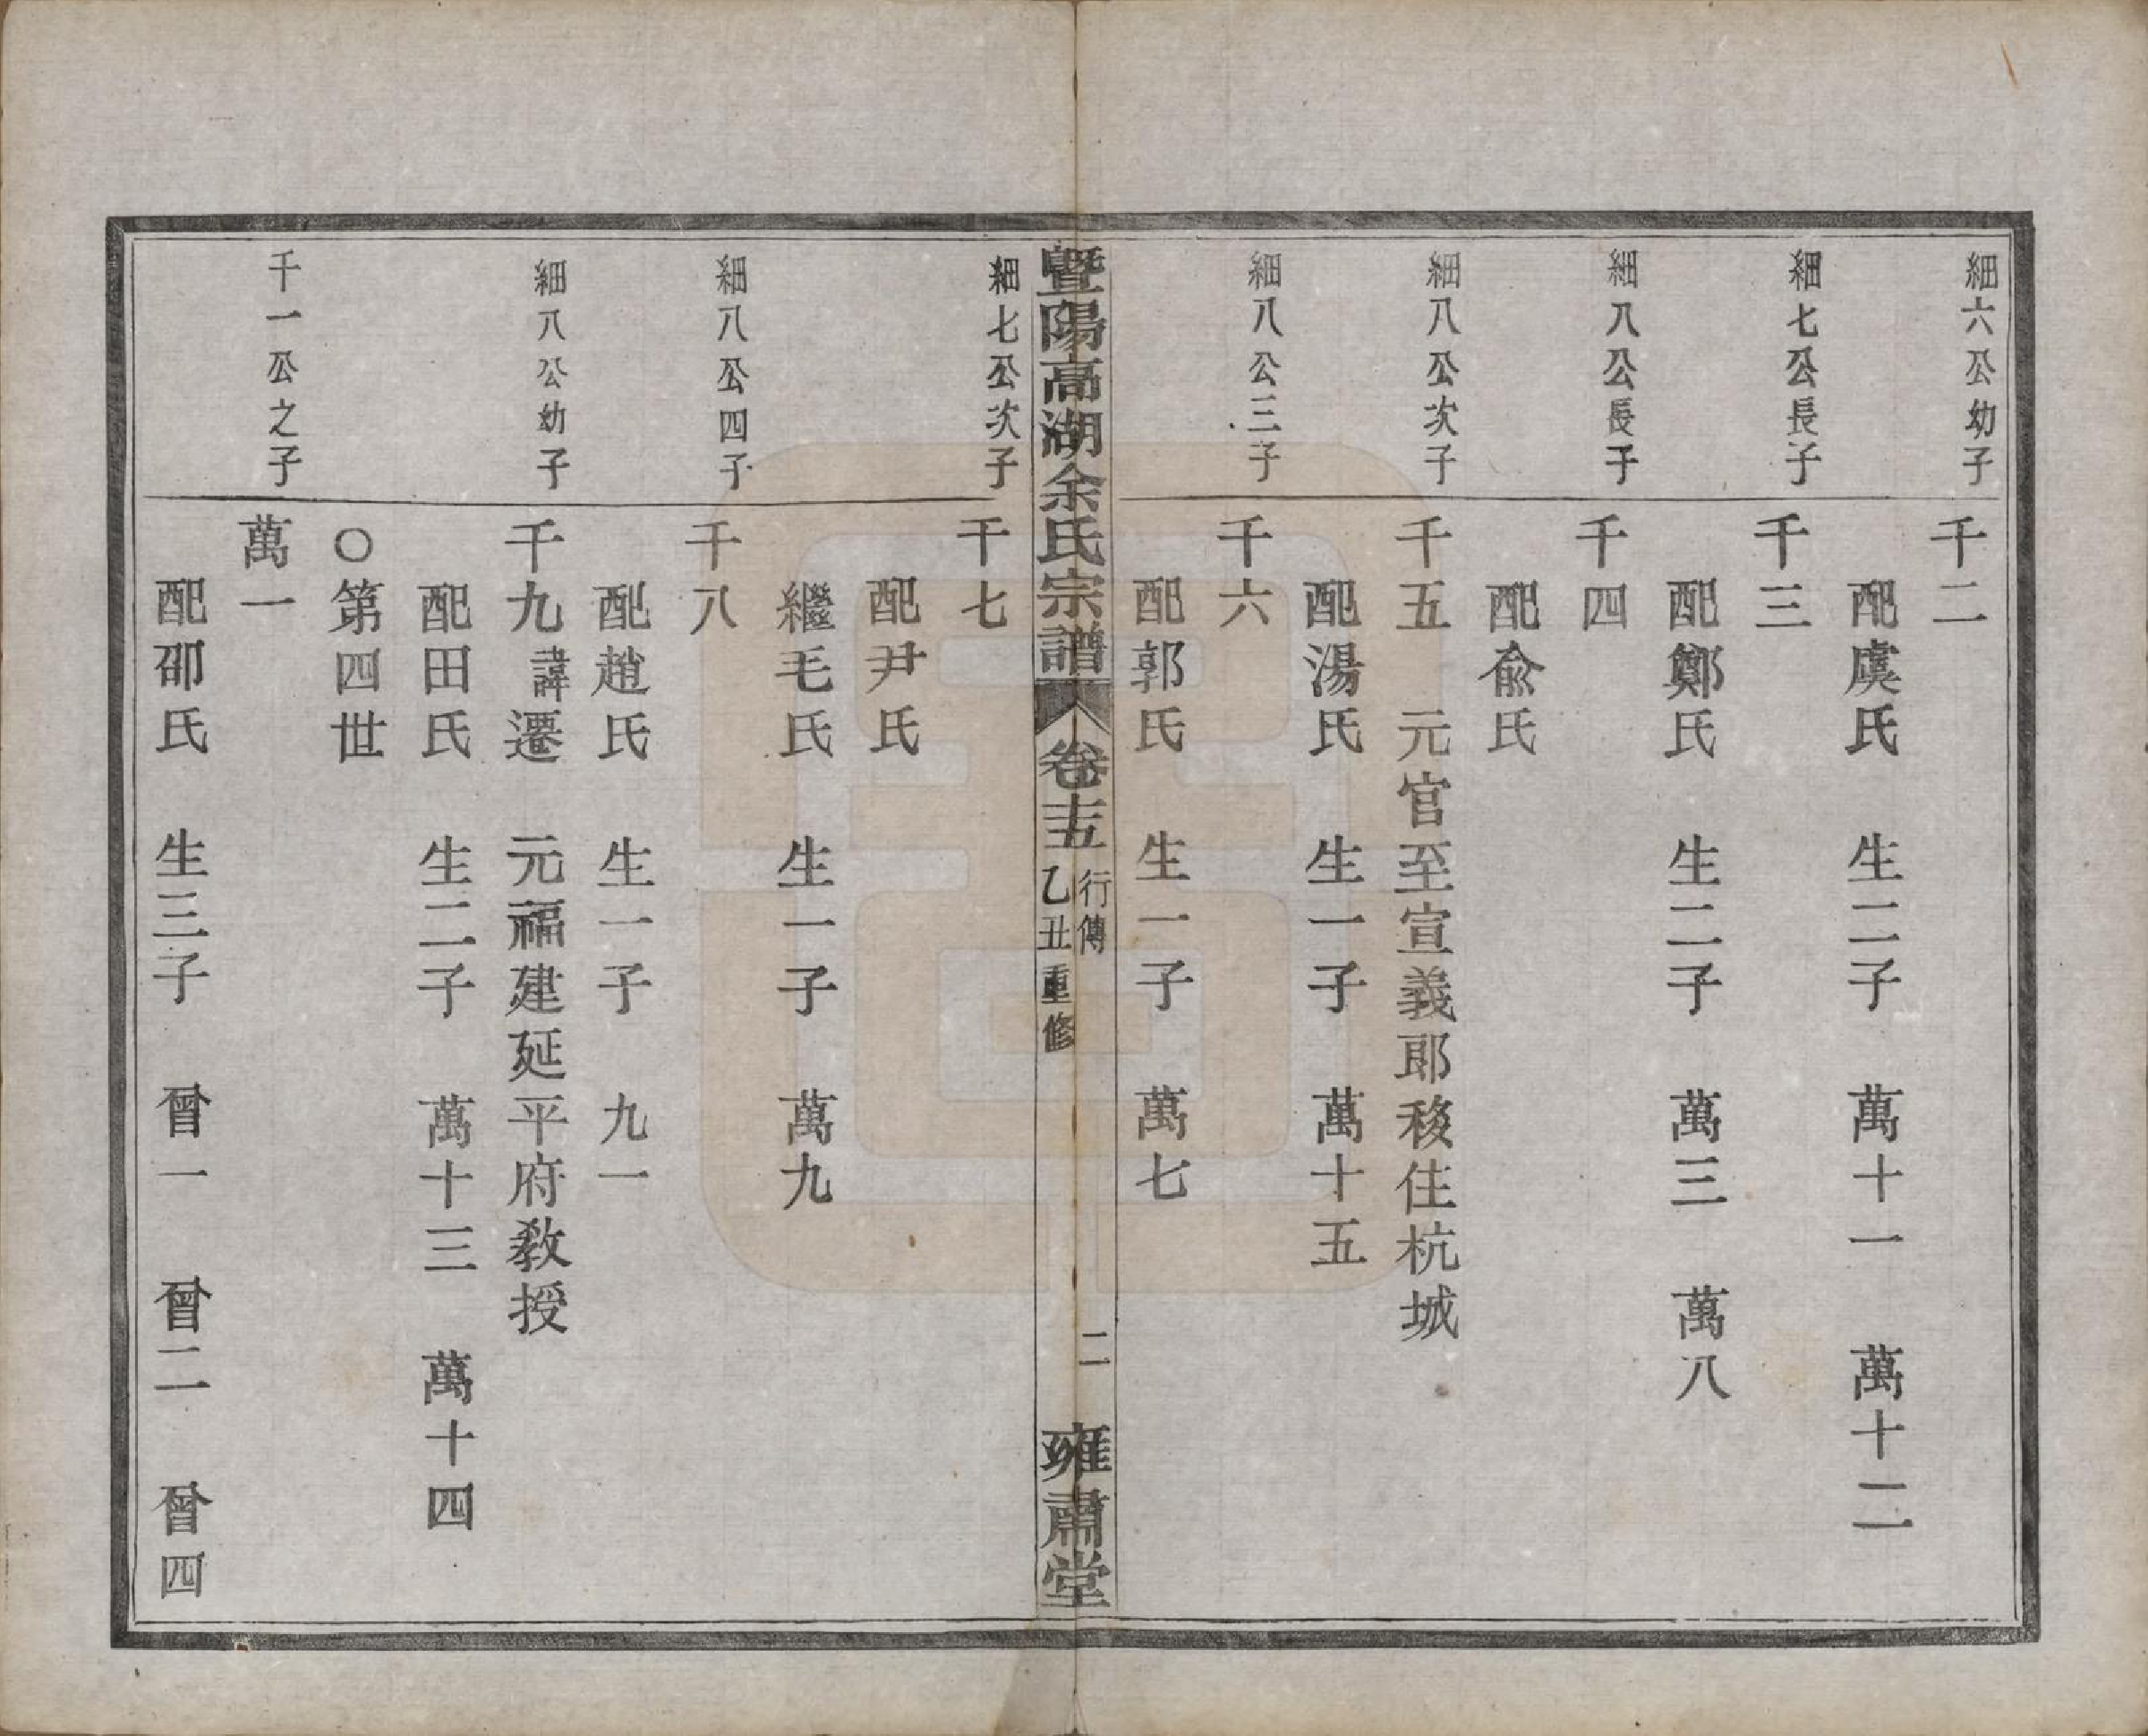 細六公幼子
千二
配虞氏　生二子　萬十一　萬十二
細七公長子
千三
配鄭氏　生二子　萬三　萬八
細八公長子
千四
配俞氏
細八公次子
千五　元官至宣義郎移住杭城
配湯氏　生一子　萬十五
細八公三子
千六
配郭氏　生一子　萬七
暨陽高湖余氏宗譜　卷十五　行傳　乙丑重修　二　雍肅堂
細七公次子
千七
配尹氏
繼毛氏　生一子　萬九
細八公四子
千八
配趙氏　生一子　九一
細八公幼子
千九諱遷　元福建延平府敎授
配田氏　生二子　萬十三　萬十四
○第四世
千一公之子
萬一
配邵氏　生三子　曾一　曾二　曾四